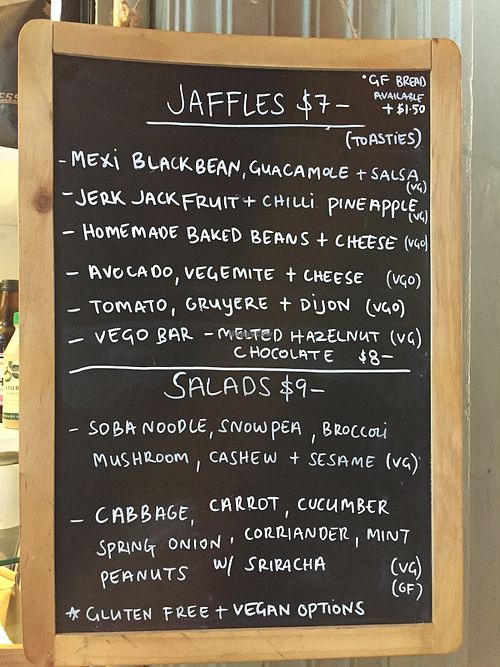 *GF BREAD
AVAILABLE
+ $1.50
JAFFLES $7-
(TOASTIES)
- MEXI BLACKBEAN, GUACAMOLE + SALSA (VG)
- JERK JACKFRUIT + CHILLI PINEAPPLE (VG)
- HOMEMADE BAKED BEANS + CHEESE (VGO)
- AVOCADO, VEGEMITE + CHEESE (VGO)
- TOMATO, GRUYERE + DIJON (VGO)
- VEGO BAR - MELTED HAZELNUT (VG)
CHOCOLATE $8-
SALADS $9-
- SOBA NOODLE, SNOWPEA, BROCCOLI
MUSHROOM, CASHEW + SESAME (VG)
- CABBAGE, CARROT, CUCUMBER
SPRING ONION, CORRIANDER, MINT
PEANUTS W/ SRIRACHA (VG)
(GF)
* GLUTEN FREE + VEGAN OPTIONS